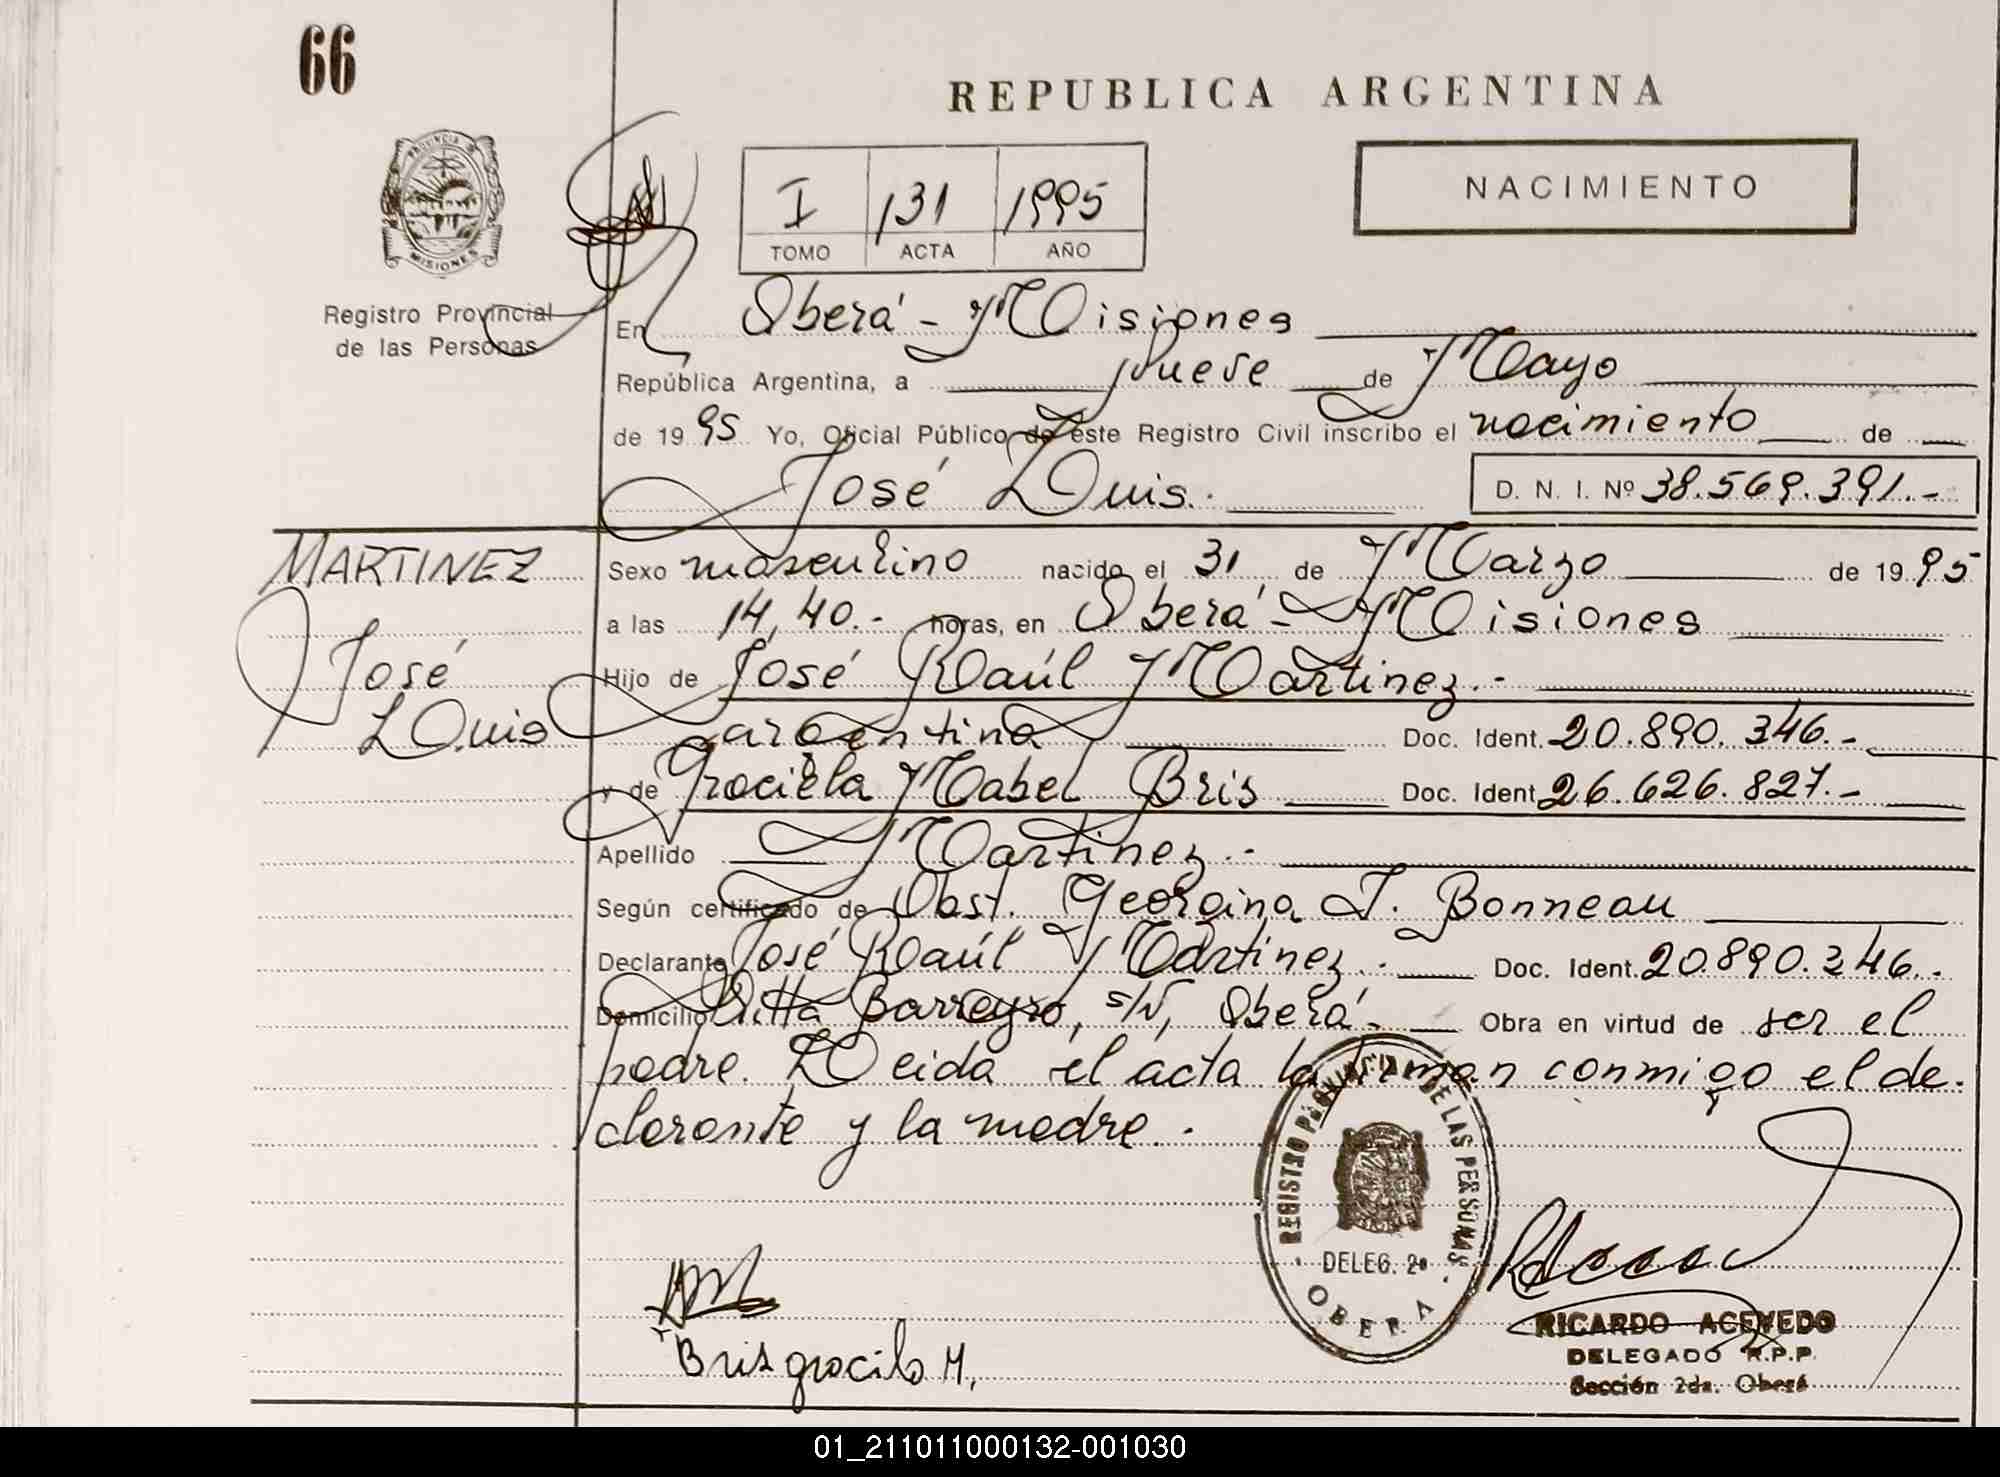 66
REPUBLICA ARGENTINA
PROVINCIA DE
MISIONES
Registro Provincial
de las Personas
I 131 1995
TOMO ACTA AÑO
NACIMIENTO
En Oberá - Misiones
República Argentina, a nueve de Mayo
de 19 95 Yo, Oficial Público de este Registro Civil inscribo el nacimiento de
José Luis.
D. N. I. Nº 38.569.391.-
MARTINEZ
José
Luis
Sexo masculino nacido el 31 de Marzo de 19 95
a las 14,40.- horas, en Oberá - Misiones
Hijo de José Raúl Martinez.-
argentina Doc. Ident. 20.890.346.-
y de Graciela Mabel Bris Doc. Ident. 26.626.827.-
Apellido Martinez.-
Según certificado de Obst. Georgina J. Bonneau
Declarante José Raúl Martinez.- Doc. Ident. 20.890.346.-
Domicilio Villa Barreyro, s/N, Oberá - Obra en virtud de ser el
padre. Leida el acta la firman conmigo el de-
clarante y la madre.-
REGISTRO PROVINCIAL DE LAS PERSONAS
DELEG. 2ª
OBERA
Bris graciela M.
RICARDO ACEVEDO
DELEGADO R.P.P.
Sección 2da. Oberá
01_211011000132-001030